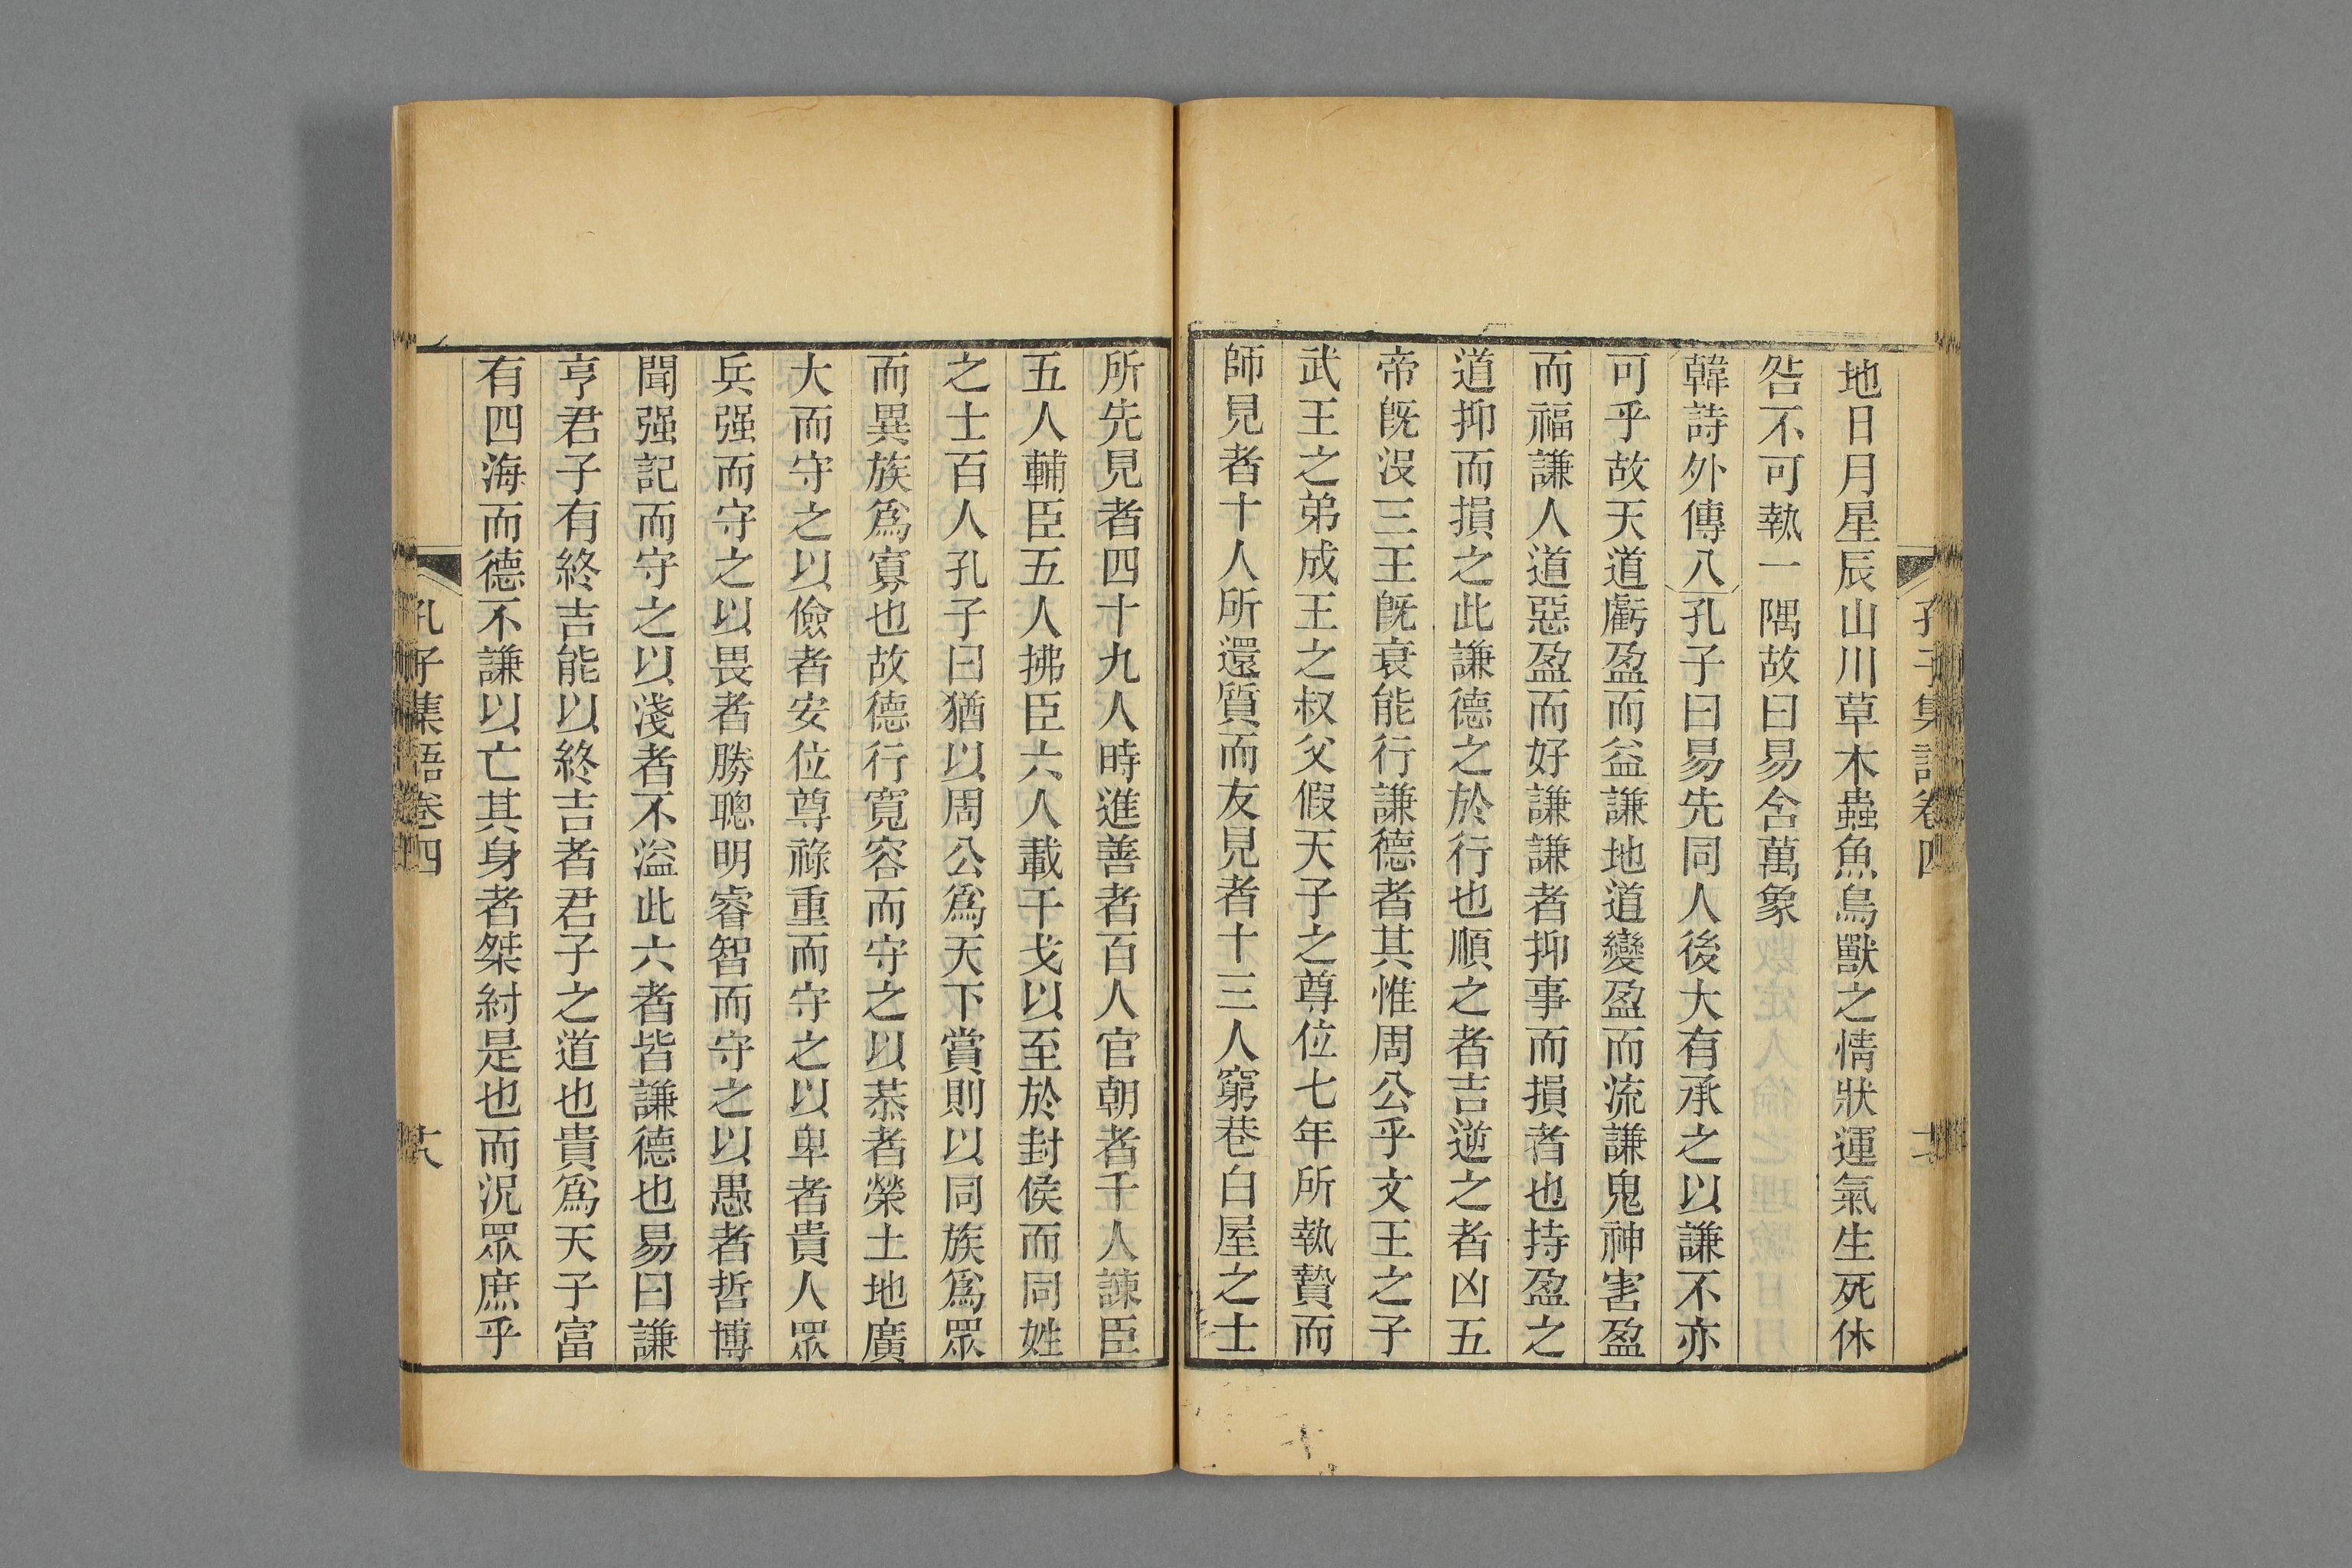 孔子集語卷四
地日月星辰山川草木蟲魚鳥獸之情狀運氣生死休
咎不可執一隅故曰易含萬象
韓詩外傳八孔子曰易先同人後大有承之以謙不亦
可乎故天道虧盈而益謙地道變盈而流謙鬼神害盈
而福謙人道惡盈而好謙謙者抑事而損者也持盈之
道抑而損之此謙德之於行也順之者吉逆之者凶五
帝旣沒三王旣衰能行謙德者其惟周公乎文王之子
武王之弟成王之叔父假天子之尊位七年所執贄而
師見者十人所還質而友見者十三人窮巷白屋之士
所先見者四十九人時進善者百人官朝者千人諫臣
五人輔臣五人拂臣六人載干戈以至於封侯而同姓
之士百人孔子曰猶以周公爲天下賞則以同族爲眾
而異族爲寡也故德行寬容而守之以恭者榮土地廣
大而守之以儉者安位尊祿重而守之以卑者貴人眾
兵强而守之以畏者勝聰明睿智而守之以愚者哲博
聞强記而守之以淺者不溢此六者皆謙德也易曰謙
亨君子有終吉能以終吉者君子之道也貴爲天子富
有四海而德不謙以亡其身者桀紂是也而況眾庶乎
孔子集語卷四